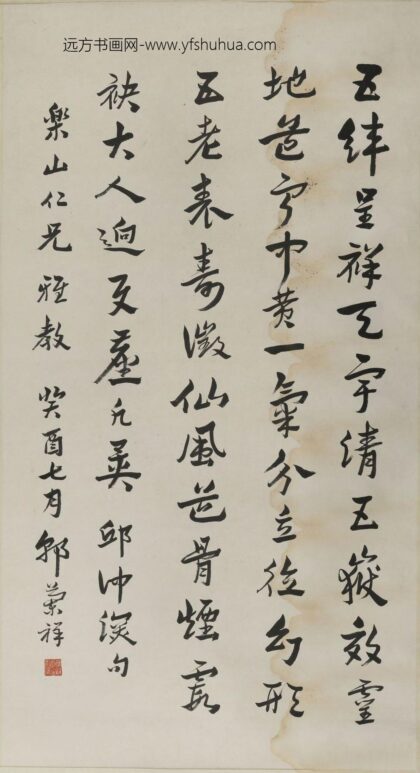 远方书画网-www.yfshuhua.com
五緯呈祥天宇清五嶽效靈
地道寧中黄一氣分五位幻形
五老表壽徵仙風道骨煙霞
袂大人迥與塵凡異 邱仲深句
樂山仁兄雅教 癸酉七月郭蘭祥